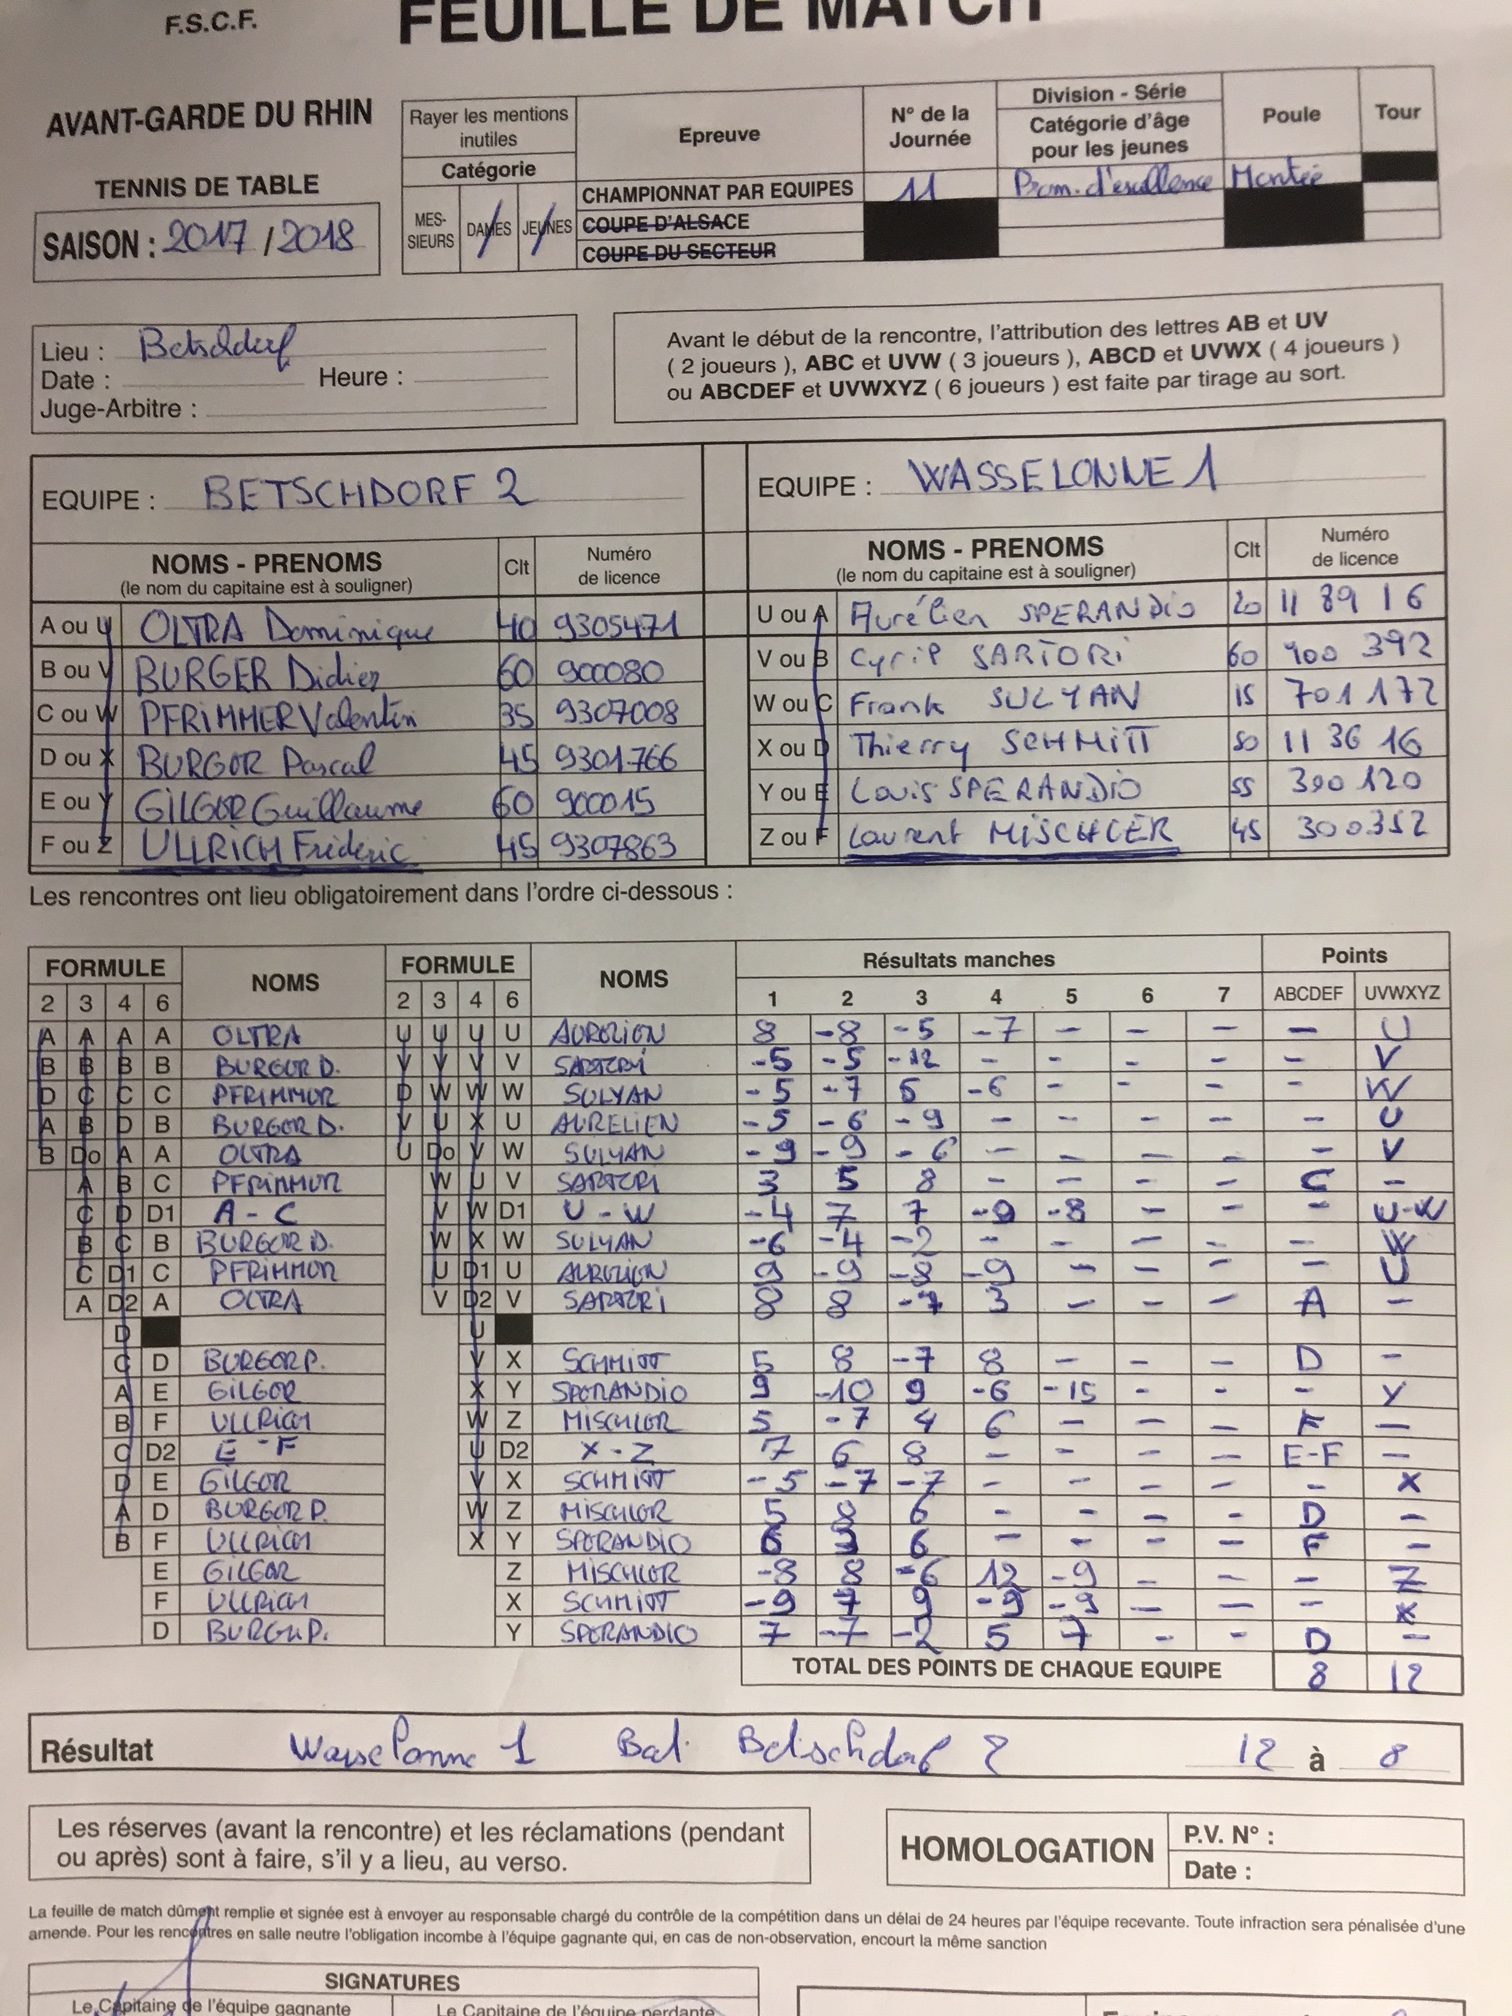 F.S.C.F. FEUILLE DE MATCH
AVANT-GARDE DU RHIN
TENNIS DE TABLE
SAISON : 2017 / 2018
Rayer les mentions inutiles
Catégorie
MES-SIEURS DAMES JEUNES
Epreuve
CHAMPIONNAT PAR EQUIPES
COUPE D'ALSACE
COUPE DU SECTEUR
N° de la Journée
11
Division - Série
Catégorie d'âge pour les jeunes
Prom. d'excellence
Poule
Montée
Tour
Lieu : Betschdorf
Date : Heure :
Juge-Arbitre :
Avant le début de la rencontre, l'attribution des lettres AB et UV
( 2 joueurs ), ABC et UVW ( 3 joueurs ), ABCD et UVWX ( 4 joueurs )
ou ABCDEF et UVWXYZ ( 6 joueurs ) est faite par tirage au sort.
EQUIPE : BETSCHDORF 2
EQUIPE : WASSELONNE 1
NOMS - PRENOMS Clt Numéro de licence
(le nom du capitaine est à souligner)
NOMS - PRENOMS Clt Numéro de licence
(le nom du capitaine est à souligner)
A ou U OLTRA Dominique 40 9305471 U ou A Aurélien SPERANDIO 20 11 89 16
B ou V BURGER Didier 60 900080 V ou B Cyril SARTORI 60 900 392
C ou W PFRIMMER Valentin 35 9307008 W ou C Frank SULYAN 15 701172
D ou X BURGER Pascal 45 9301766 X ou D Thierry SCHMITT 50 11 36 16
E ou Y GILGER Guillaume 60 900015 Y ou E Louis SPERANDIO 55 300 120
F ou Z ULLRICH Fréderic 45 9307863 Z ou F Laurent MISCHLER 45 300352
Les rencontres ont lieu obligatoirement dans l'ordre ci-dessous :
FORMULE NOMS FORMULE NOMS Résultats manches Points
2 3 4 6 2 3 4 6 1 2 3 4 5 6 7 ABCDEF UVWXYZ
A A A A OLTRA U U U U AURELIEN 8 -8 -5 -7 - - - - U
B B B B BURGER D. V V V V SARTORI -5 -5 -12 - - - - - V
D C C C PFRIMMER D W W W SULYAN -5 -7 5 -6 - - - - W
A B D B BURGER D. V U X U AURELIEN -5 -6 -9 - - - - - U
B Do A A OLTRA U Do V W SULYAN -9 -9 -6 - - - - - V
A B C PFRIMMER W U V SARTORI 3 5 8 - - - - C -
C D D1 A - C V W D1 U - W -4 7 7 -9 -8 - - - U-W
B C B BURGER D. W X W SULYAN -6 -4 -2 - - - - - W
C D1 C PFRIMMER U D1 U AURELIEN 9 -9 -8 -9 - - - - U
A D2 A OLTRA V D2 V SARTORI 8 8 -7 3 - - - A -
D U
C D BURGER P. V X SCHMITT 5 8 -7 8 - - - D -
A E GILGER X Y SPERANDIO 9 -10 9 -6 -15 - - - Y
B F ULLRICH W Z MISCHLER 5 -7 4 6 - - - F -
C D2 E - F U D2 X - Z 7 6 8 - - - - E-F -
D E GILGER V X SCHMITT -5 -7 -7 - - - - - X
A D BURGER P. W Z MISCHLER 5 8 6 - - - - D -
B F ULLRICH X Y SPERANDIO 6 3 6 - - - - F -
E GILGER Z MISCHLER -8 8 -6 12 -9 - - - Z
F ULLRICH X SCHMITT -9 7 9 -9 -9 - - - X
D BURGER P. Y SPERANDIO 7 -7 -2 5 7 - - D -
TOTAL DES POINTS DE CHAQUE EQUIPE 8 12
Résultat Wasselonne 1 Bat. Betschdorf 2 12 à 8
Les réserves (avant la rencontre) et les réclamations (pendant
ou après) sont à faire, s'il y a lieu, au verso.
HOMOLOGATION
P.V. N° :
Date :
La feuille de match dûment remplie et signée est à envoyer au responsable chargé du contrôle de la compétition dans un délai de 24 heures par l'équipe recevante. Toute infraction sera pénalisée d'une
amende. Pour les rencontres en salle neutre l'obligation incombe à l'équipe gagnante qui, en cas de non-observation, encourt la même sanction
SIGNATURES
Le Capitaine de l'équipe gagnante Le Capitaine de l'équipe perdante